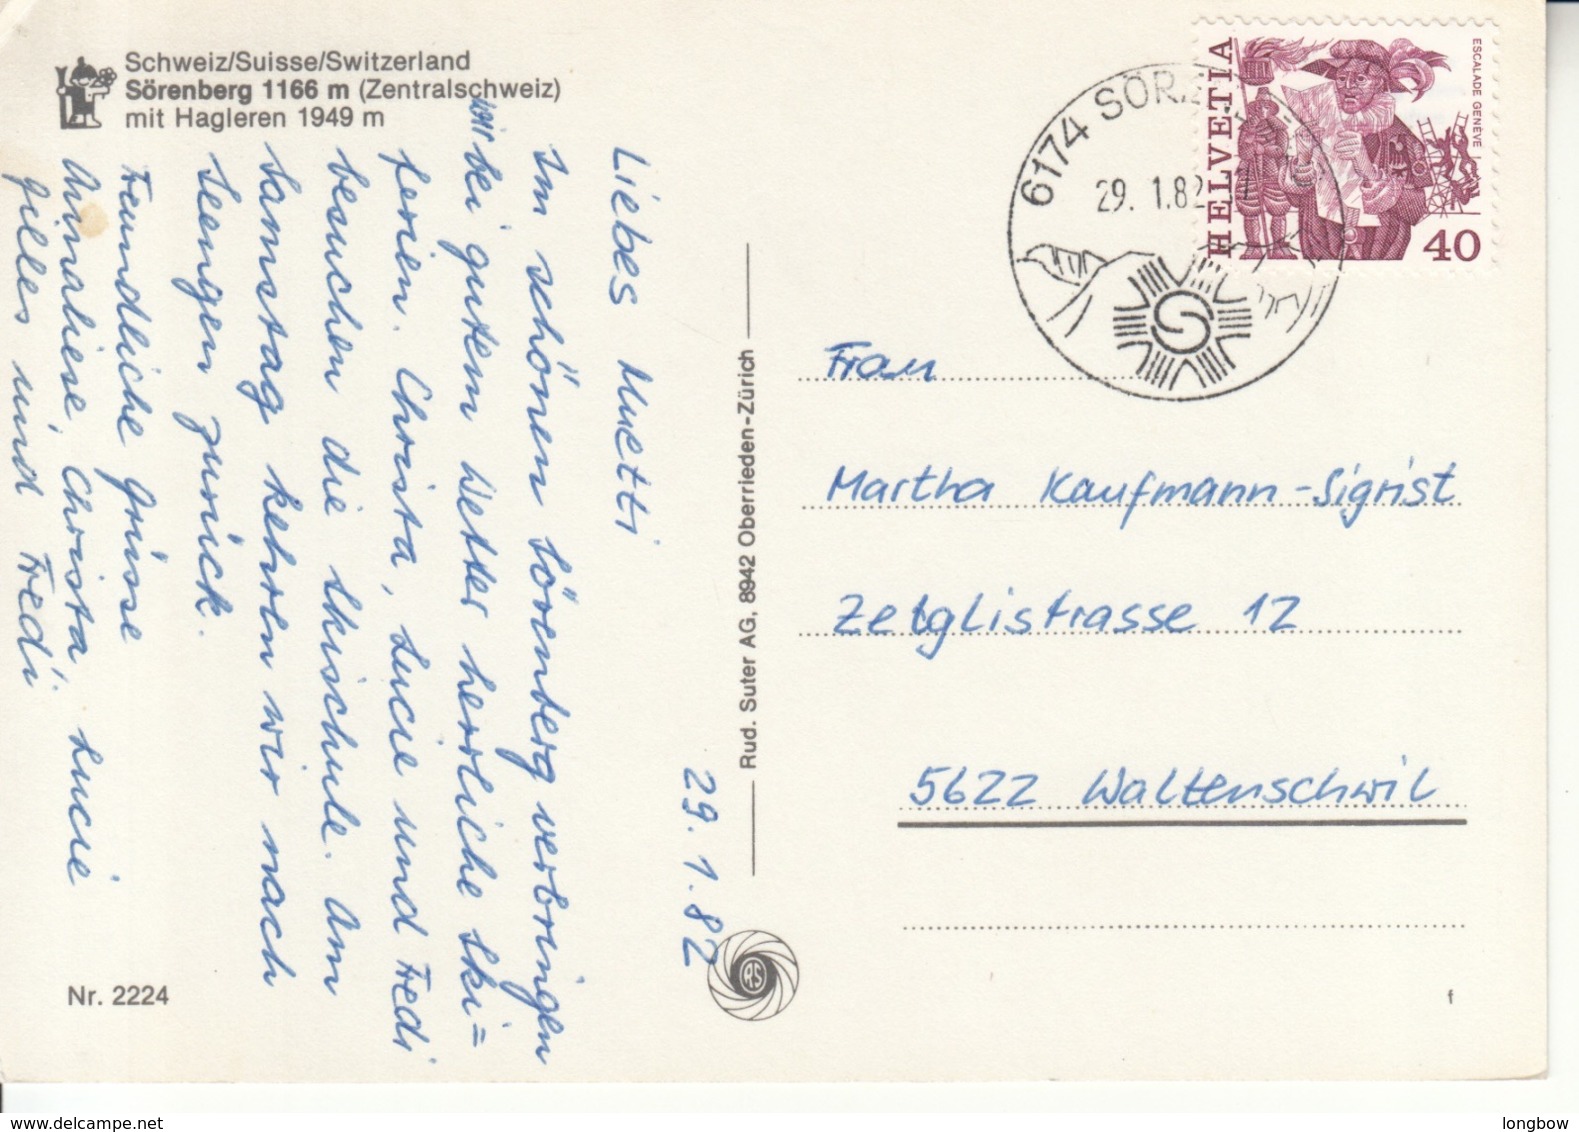 Schweiz/Suisse/Switzerland
Sörenberg 1166 m (Zentralschweiz)
mit Hagleren 1949 m
29.1.82
Liebes Muetti
Im schönen Sörenberg verbringen
wir bei gutem Wetter herrliche Ski=
ferien. Christa, Lucie und Fredi
besuchen die Skischule. Am
Samstag kehren wir nach
Seengen zurück.
Freundliche Grüsse
Annaliese, Christa, Lucie
Gilles und Fredi
Nr. 2224
Rud. Suter AG, 8942 Oberrieden-Zürich
RS
6174 SÖR
29. 1.82
HELVETIA
ESCALADE GENÈVE
40
Frau
Martha Kaufmann-Sigrist
Zelglistrasse 12
5622 Waltenschwil
f
www.delcampe.net
longbow